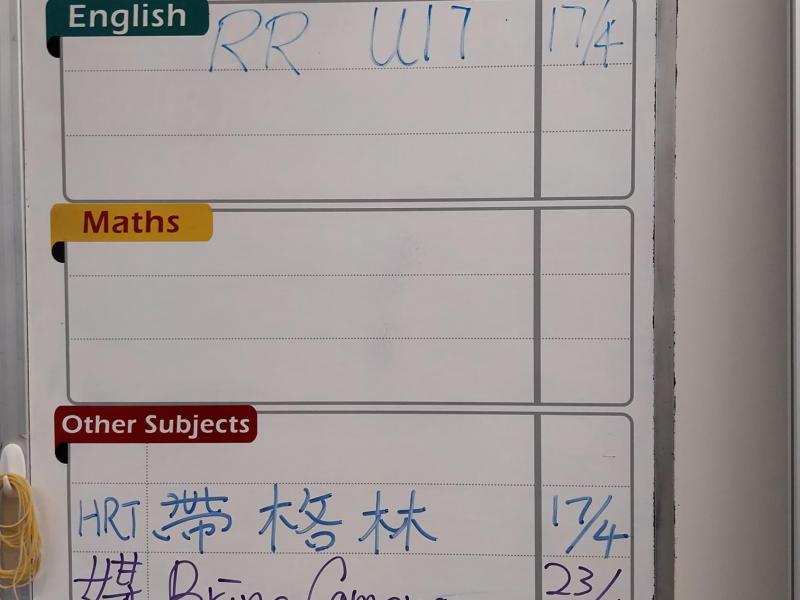 English
RR U17 17/4
Maths
Other Subjects
HRT 帶 格林 17/4
Bring Camera 23/